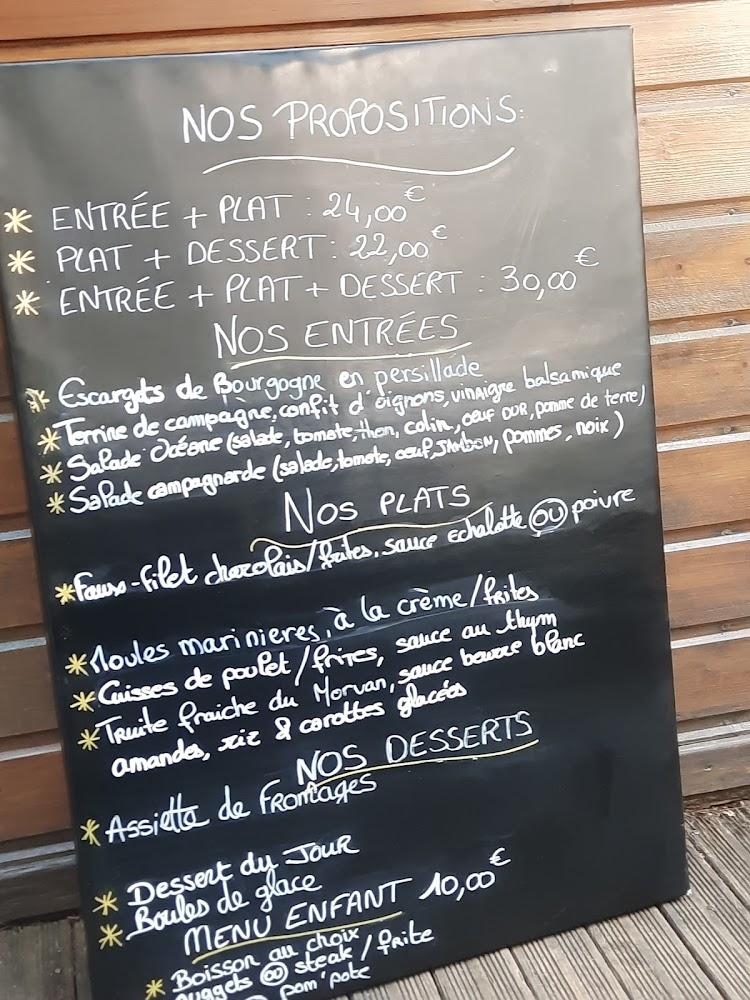 NOS PROPOSITIONS:
* ENTRÉE + PLAT : 24,00€
* PLAT + DESSERT : 22,00€
* ENTRÉE + PLAT + DESSERT : 30,00€
NOS ENTRÉES
* Escargots de Bourgogne en persillade
* Terrine de campagne, confit d'oignons, vinaigre balsamique
* Salade Océane (salade, tomate, thon, colin, oeuf DUR, pomme de terre)
* Salade campagnarde (salade, tomate, oeuf, JAMBON, pommes, noix)
NOS PLATS
* Faux-filet charolais/frites, sauce echalotte OU poivre
* Moules marinieres, à la crème/frites
* Cuisses de poulet/frites, sauce au thym
* Truite fraiche du Morvan, sauce beurre blanc
amandes, riz & carottes glacées
NOS DESSERTS
* Assiette de FROMAGES
* Dessert du JOUR
* Boules de glace
MENU ENFANT 10,00€
* Boisson au choix
nuggets OU steak / frite
pom'pote